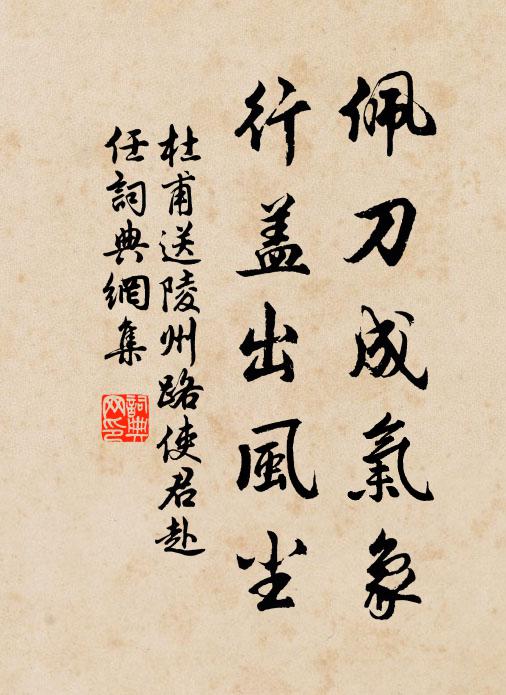 佩刀成氣象
行盖出風尘
杜甫送陵州路使君赴
任詞典網集
詞典
网印